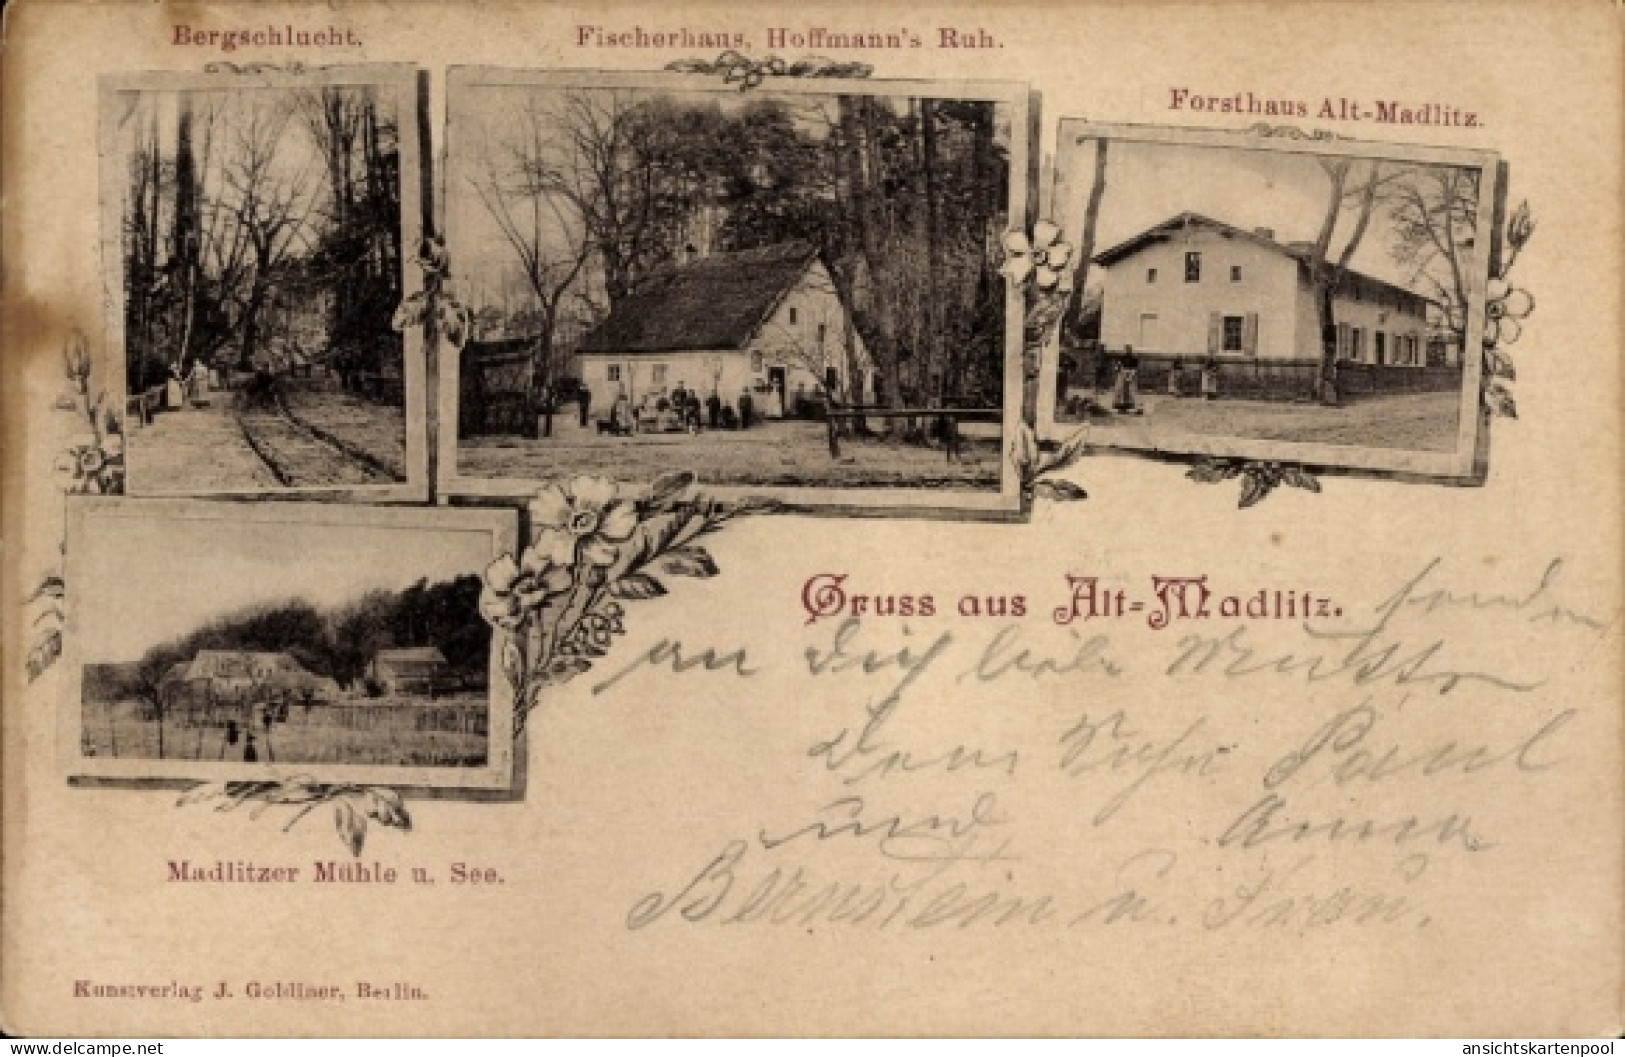 Bergschlucht.
Fischerhaus, Hoffmann's Ruh.
Forsthaus Alt-Madlitz.
Gruss aus Alt-Madlitz.
senden
an Dich liebe Mutter
Dein Sohn Paul
und Anna
Bernstein u. Frau.
Madlitzer Mühle u. See.
Kunstverlag J. Goldiner, Berlin.
delcampe.net
ansichtskartenpool